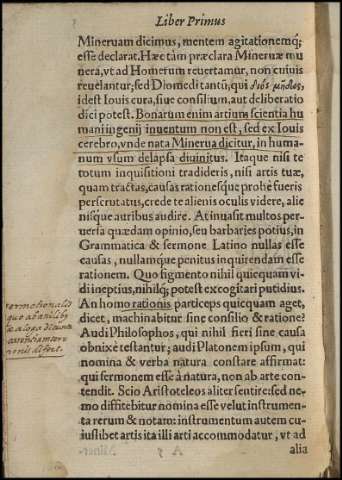 Liber Primus
Mineruam dicimus, mentem agitationemq́;
esse declarat. Hæc tàm præclara Mineruæ mu
nera, vt ad Homerum reuertamur, non cuiuis
reuelantur, sed Diomedi tantû, qui διὸς μῆδος,
id est Iouis cura, siue consilium, aut deliberatio
dici potest. Bonarum enim artium scientia hu
mani ingenij inuentum non est, sed ex Iouis
cerebro, vnde nata Minerua dicitur, in huma-
num vsum delapsa diuinitus. Itaque nisi te
totum inquisitioni tradideris, nisi artis tuæ,
quam tractas, causas rationesque probè fueris
perscrutatus, crede te alienis oculis videre, alie
nisque auribus audire. At inuasit multos per-
uersa quædam opinio, seu barbaries potius, in
Grammatica & sermone Latino nullas esse
causas, nullamque penitus inquirendam esse
rationem. Quo figmento nihil quicquam vi-
di ineptius, nihilq́; potest excogitari putidius.
An homo rationis particeps quicquam aget,
dicet, machinabitur sine consilio & ratione?
Audi Philosophos, qui nihil fieri sine causa
obnixè testantur; audi Platonem ipsum, qui
nomina & verba natura constare affirmat:
qui sermonem esse à natura, non ab arte con-
tendit. Scio Aristoteleos aliter sentire: sed ne-
mo diffitebitur nomina esse velut instrumen-
ta rerum & notam: instrumentum autem cu-
iuslibet artis ita illi arti accommodatur, vt ad
alia